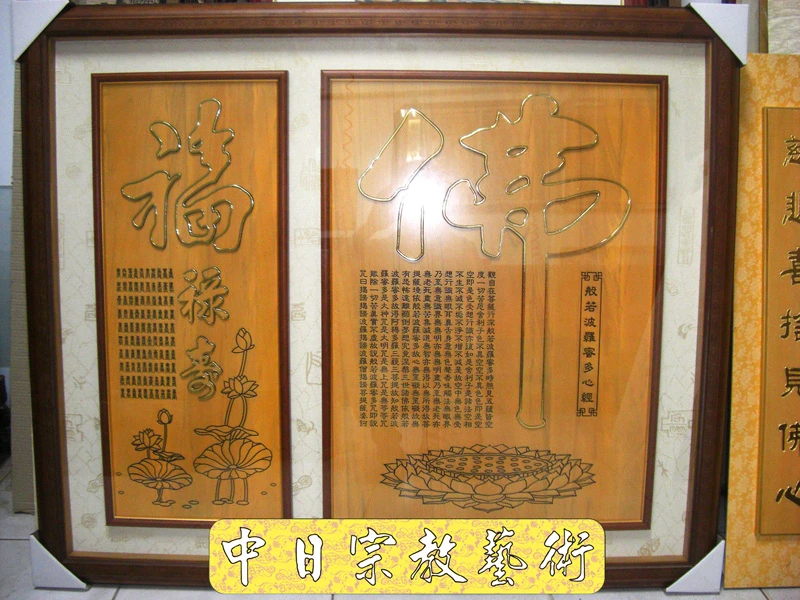 佛
般若波羅蜜多心經
觀自在菩薩行深般若波羅蜜多時照見五蘊皆空
度一切苦厄舍利子色不異空空不異色色即是空
空即是色受想行識亦復如是舍利子是諸法空相
不生不滅不垢不淨不增不減是故空中無色無受
想行識無眼耳鼻舌身意無色聲香味觸法無眼界
乃至無意識界無無明亦無無明盡乃至無老死亦
無老死盡無苦集滅道無智亦無得以無所得故菩
提薩埵依般若波羅蜜多故心無罣礙無罣礙故無
有恐怖遠離顛倒夢想究竟涅槃三世諸佛依般若
波羅蜜多故得阿耨多羅三藐三菩提故知般若波
羅蜜多是大神咒是大明咒是無上咒是無等等咒
能除一切苦真實不虛故說般若波羅蜜多咒即說
咒曰揭諦揭諦波羅揭諦波羅僧揭諦菩提薩婆訶
福
祿壽
慈悲喜捨見佛心
中日宗教藝術